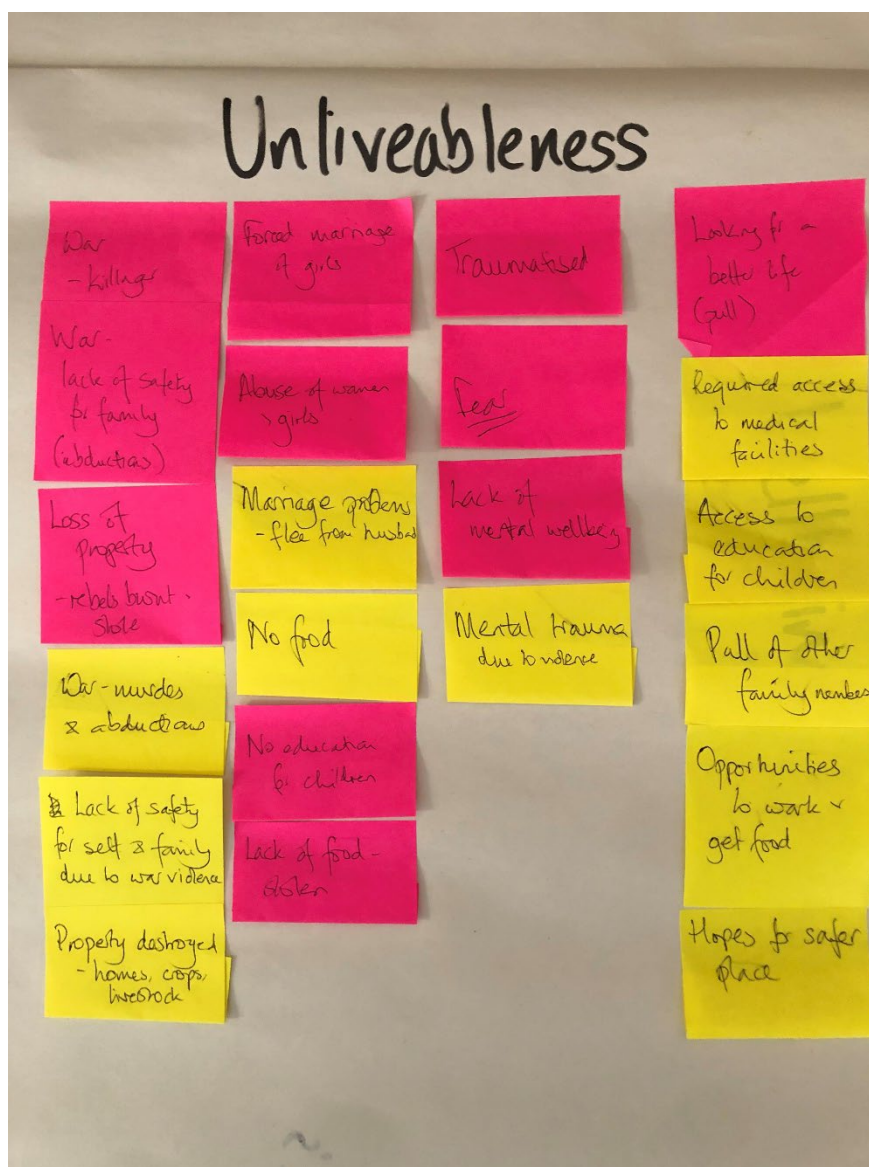 Unliveableness
War
- killings
War -
lack of safety
for family
(abductions)
Loss of
property
- rebels burnt -
stole
War - murders
& abductions
Lack of safety
for self & family
due to war violence
Property destroyed
- homes, crops,
livestock
Forced marriage
of girls
Abuse of women
& girls
Marriage problems
- flee from husband
No food
No education
for children
Lack of food -
stolen
Traumatised
Fear
Lack of
mental wellbeing
Mental trauma
due to violence
Looking for a
better life
(pull)
Required access
to medical
facilities
Access to
education
for children
Pull of other
family members
Opportunities
to work &
get food
Hopes for safer
place